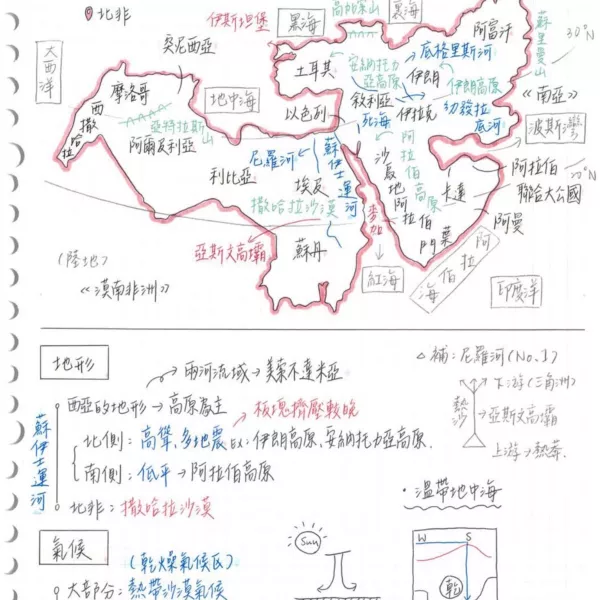 北非
伊斯坦堡
黑海
高加索山
裏海
大西洋
突尼西亞
土耳其
安納托力亞高原
底格里斯河
阿富汗
蘇里曼山
30°N
摩洛哥
地中海
敘利亞
伊朗
伊朗高原
《南亞》
西撒哈拉
亞特拉斯山
以色列
死海
伊拉克
幼發拉底河
波斯灣
阿爾及利亞
尼羅河
蘇伊士運河
沙烏地阿拉伯
阿拉伯高原
卡達
阿拉伯
聯合大公國
20°N
利比亞
埃及
撒哈拉沙漠
麥加
葉門
阿曼
亞斯文高壩
蘇丹
(陸地)
《漠南非洲》
紅海
阿拉伯海
印度洋
地形
兩河流域→美索不達米亞
△補:尼羅河(No.1)
西亞的地形→高原為主
下游(三角洲)
板塊擠壓較晚
熱沙
→亞斯文高壩
蘇伊士運河
北側:高聳、多地震 Ex:伊朗高原、安納托力亞高原.
上游→熱莽.
南側:低平→阿拉伯高原
北非:撒哈拉沙漠
·溫帶地中海
氣候
(乾燥氣候區)
Sun
W
S
乾
大部分:熱帶沙漠氣候